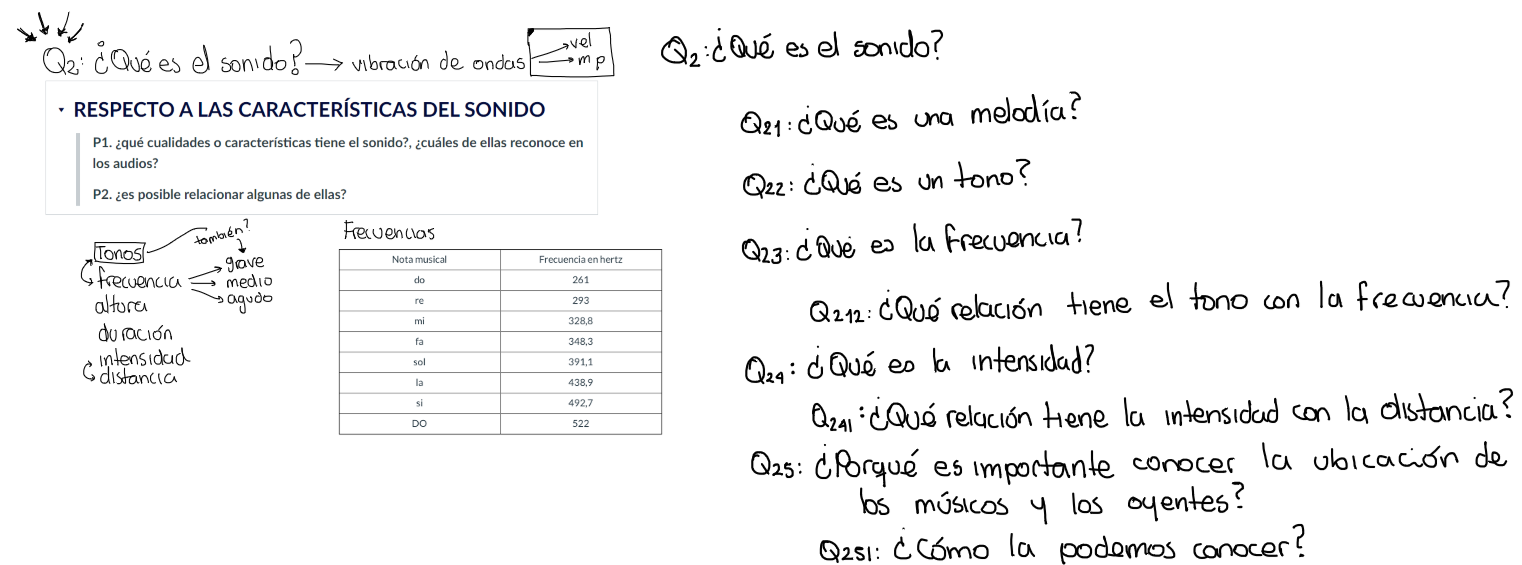 Q2: ¿Qué es el sonido? → vibración de ondas → vel
→ m p
RESPECTO A LAS CARACTERÍSTICAS DEL SONIDO
P1. ¿qué cualidades o características tiene el sonido?, ¿cuáles de ellas reconoce en
los audios?
P2. ¿es posible relacionar algunas de ellas?
Tonos
también?
frecuencia → grave
→ medio
→ agudo
altura
duración
intensidad
distancia
Frecuencias
Nota musical Frecuencia en hertz
do 261
re 293
mi 328,8
fa 348,3
sol 391,1
la 438,9
si 492,7
DO 522
Q2: ¿Qué es el sonido?
Q21: ¿Qué es una melodía?
Q22: ¿Qué es un tono?
Q23: ¿Qué es la frecuencia?
Q212: ¿Qué relación tiene el tono con la frecuencia?
Q24: ¿Qué es la intensidad?
Q241: ¿Qué relación tiene la intensidad con la distancia?
Q25: ¿Porqué es importante conocer la ubicación de
los músicos y los oyentes?
Q251: ¿Cómo la podemos conocer?